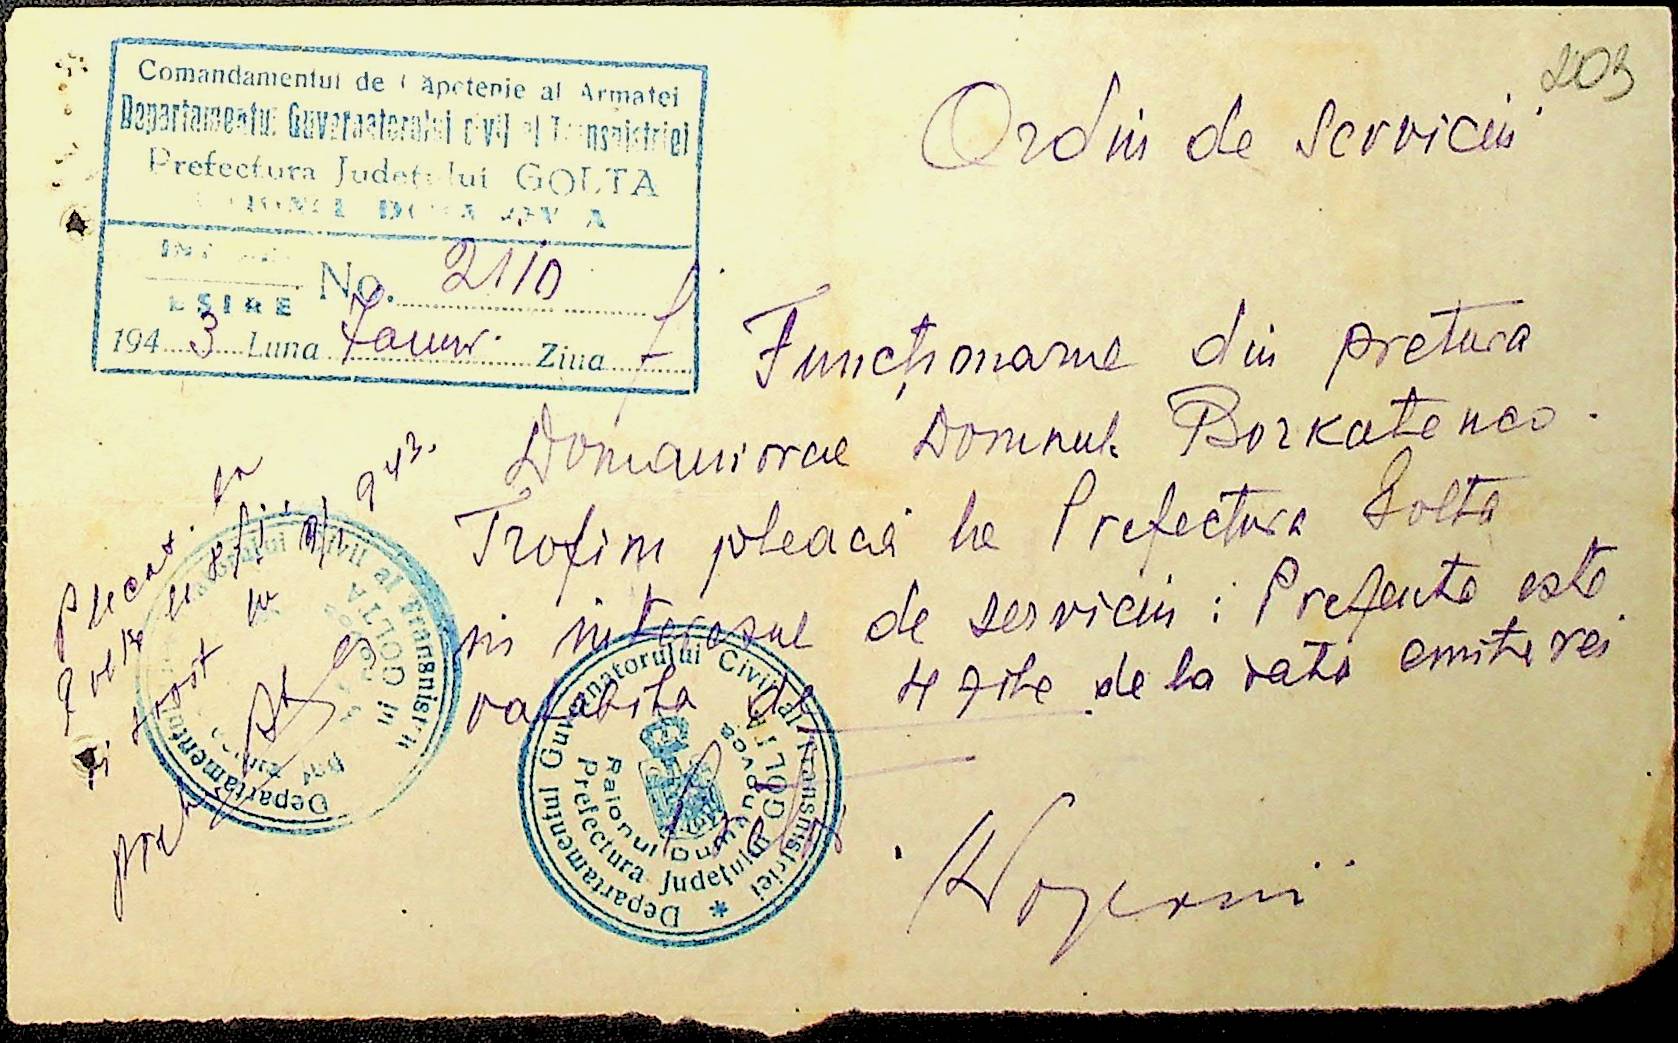 203
Comandamentul de Căpetenie al Armatei
Departamentul Guvernatorului civil al Transnistriei
Prefectura Județului GOLTA
EȘIRE No. 21/D
1943 Luna Ianuar. Ziua 7
Ordin de serviciu
Funcționarul din pretura
Domaniovca Domnul Borkatenco
Trofim pleacă la Prefectura Golta
in interesul de serviciu: Prefenta este
valabila de 4 zile de la data emiterei
Plecat la
Golta 943.
a fost la
Departamentul Guvernatorului Civil al Transnistriei
GOLTA
Departamentul Guvernatorului Civil al Transnistriei
Prefectura Județului GOLTA
Raionul Dumanovca